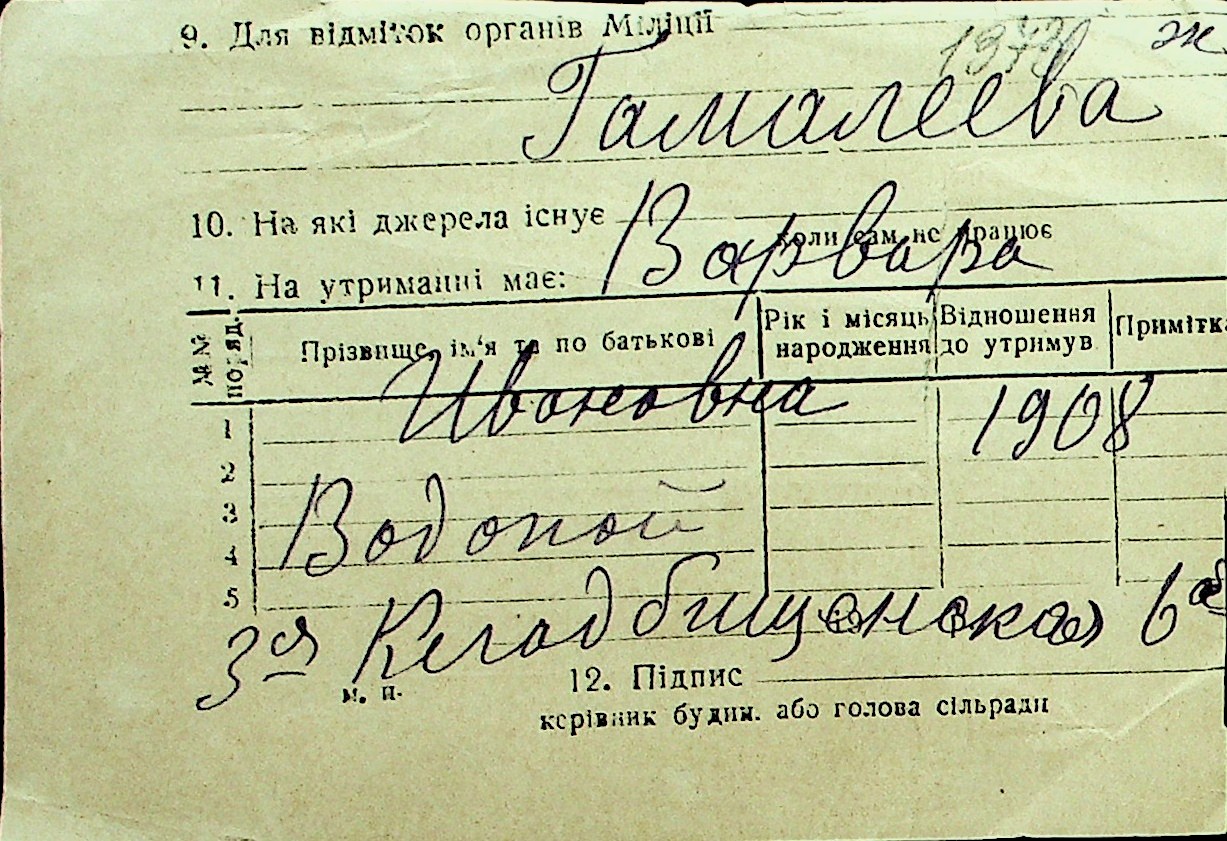 9. Для відміток органів Міліції
ж
Гамалеева
10. На які джерела існує
коли сам не працює
Варвара
11. На утриманні має:
№№ поряд.
Прізвище, ім'я та по батькові
Рік і місяць народження
Відношення до утримув
Примітка
Ивановна
1908
1
2
Водопой
3
4
5
3я Кладбищенская 6а
м. п.
12. Підпис
керівник будин. або голова сільради